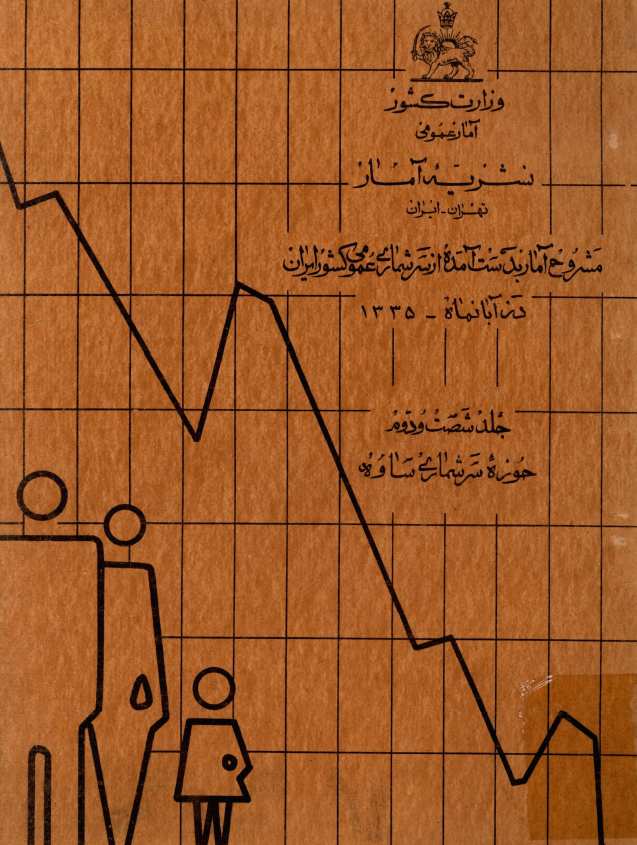 وزارت کشور
آمار عمومی
نشریهٔ آمار
تهران - ایران
مشروح آمار بدست آمده از سرشماری عمومی کشور ایران
در آبانماه - ۱۳۳۵
جلد شصت و دوم
حوزهٔ سرشماری ساوه